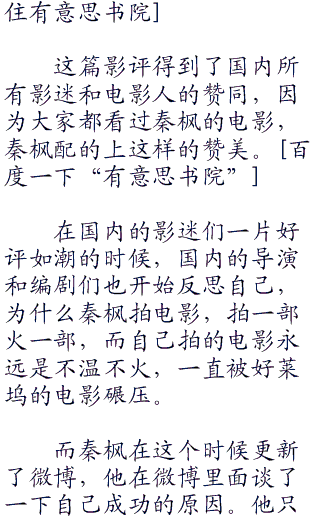 住有意思书院]
这篇影评得到了国内所
有影迷和电影人的赞同，因
为大家都看过秦枫的电影，
秦枫配的上这样的赞美。[百
度一下“有意思书院”]
在国内的影迷们一片好
评如潮的时候，国内的导演
和编剧们也开始反思自己，
为什么秦枫拍电影，拍一部
火一部，而自己拍的电影永
远是不温不火，一直被好莱
坞的电影碾压。
而秦枫在这个时候更新
了微博，他在微博里面谈了
一下自己成功的原因。他只